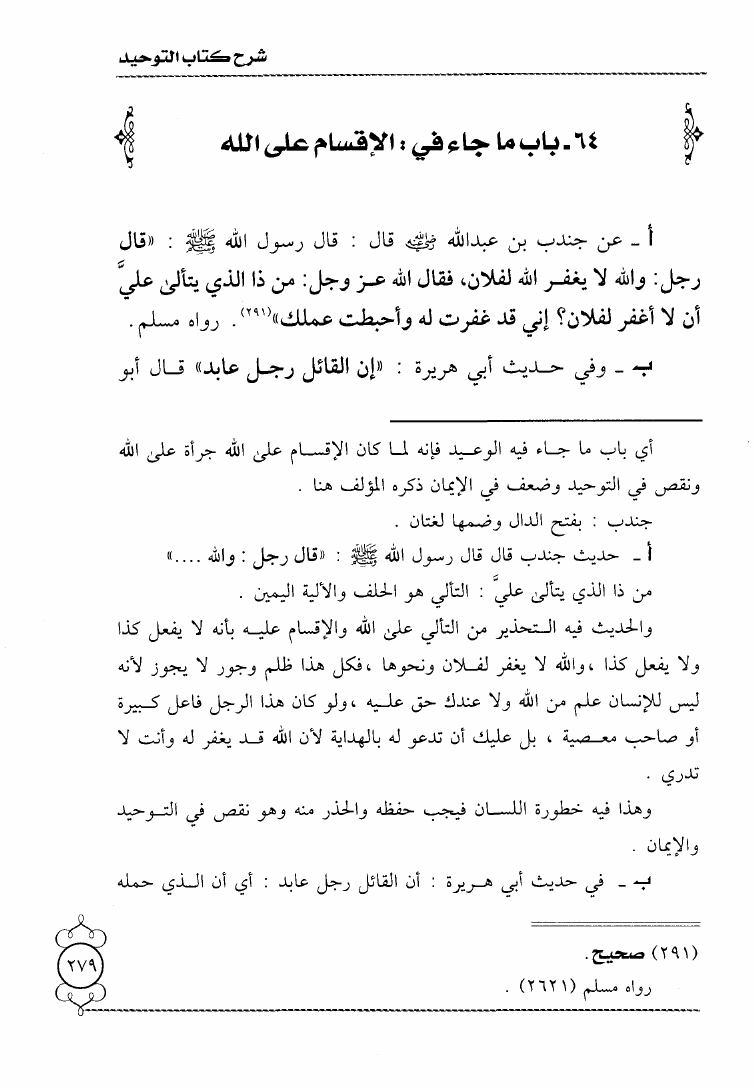 شرح كتاب التوحيد
٦٤ - باب ما جاء في : الإقسام على الله
أ - عن جندب بن عبدالله رضي الله عنه قال : قال رسول الله ﷺ : «قال
رجل: والله لا يغفر الله لفلان، فقال الله عز وجل: من ذا الذي يتألىٰ عليَّ
أن لا أغفر لفلان؟ إني قد غفرت له وأحبطت عملك»(٢٩١). رواه مسلم.
ب - وفي حديث أبي هريرة : «إن القائل رجل عابد» قال أبو
أي باب ما جاء فيه الوعيد فإنه لما كان الإقسام علىٰ الله جرأة علىٰ الله
ونقص في التوحيد وضعف في الإيمان ذكره المؤلف هنا .
جندب : بفتح الدال وضمها لغتان .
أ - حديث جندب قال قال رسول الله ﷺ : «قال رجل : والله ....»
من ذا الذي يتألىٰ عليَّ : التألي هو الحلف والألية اليمين .
والحديث فيه التحذير من التألي علىٰ الله والإقسام عليه بأنه لا يفعل كذا
ولا يفعل كذا ،والله لا يغفر لفلان ونحوها ،فكل هذا ظلم وجور لا يجوز لأنه
ليس للإنسان علم من الله ولا عندك حق عليه ،ولو كان هذا الرجل فاعل كبيرة
أو صاحب معصية ، بل عليك أن تدعو له بالهداية لأن الله قد يغفر له وأنت لا
تدري .
وهذا فيه خطورة اللسان فيجب حفظه والحذر منه وهو نقص في التوحيد
والإيمان .
ب - في حديث أبي هريرة : أن القائل رجل عابد : أي أن الذي حمله
(٢٩١) صحيح.
رواه مسلم (٢٦٢١) .
٢٧٩